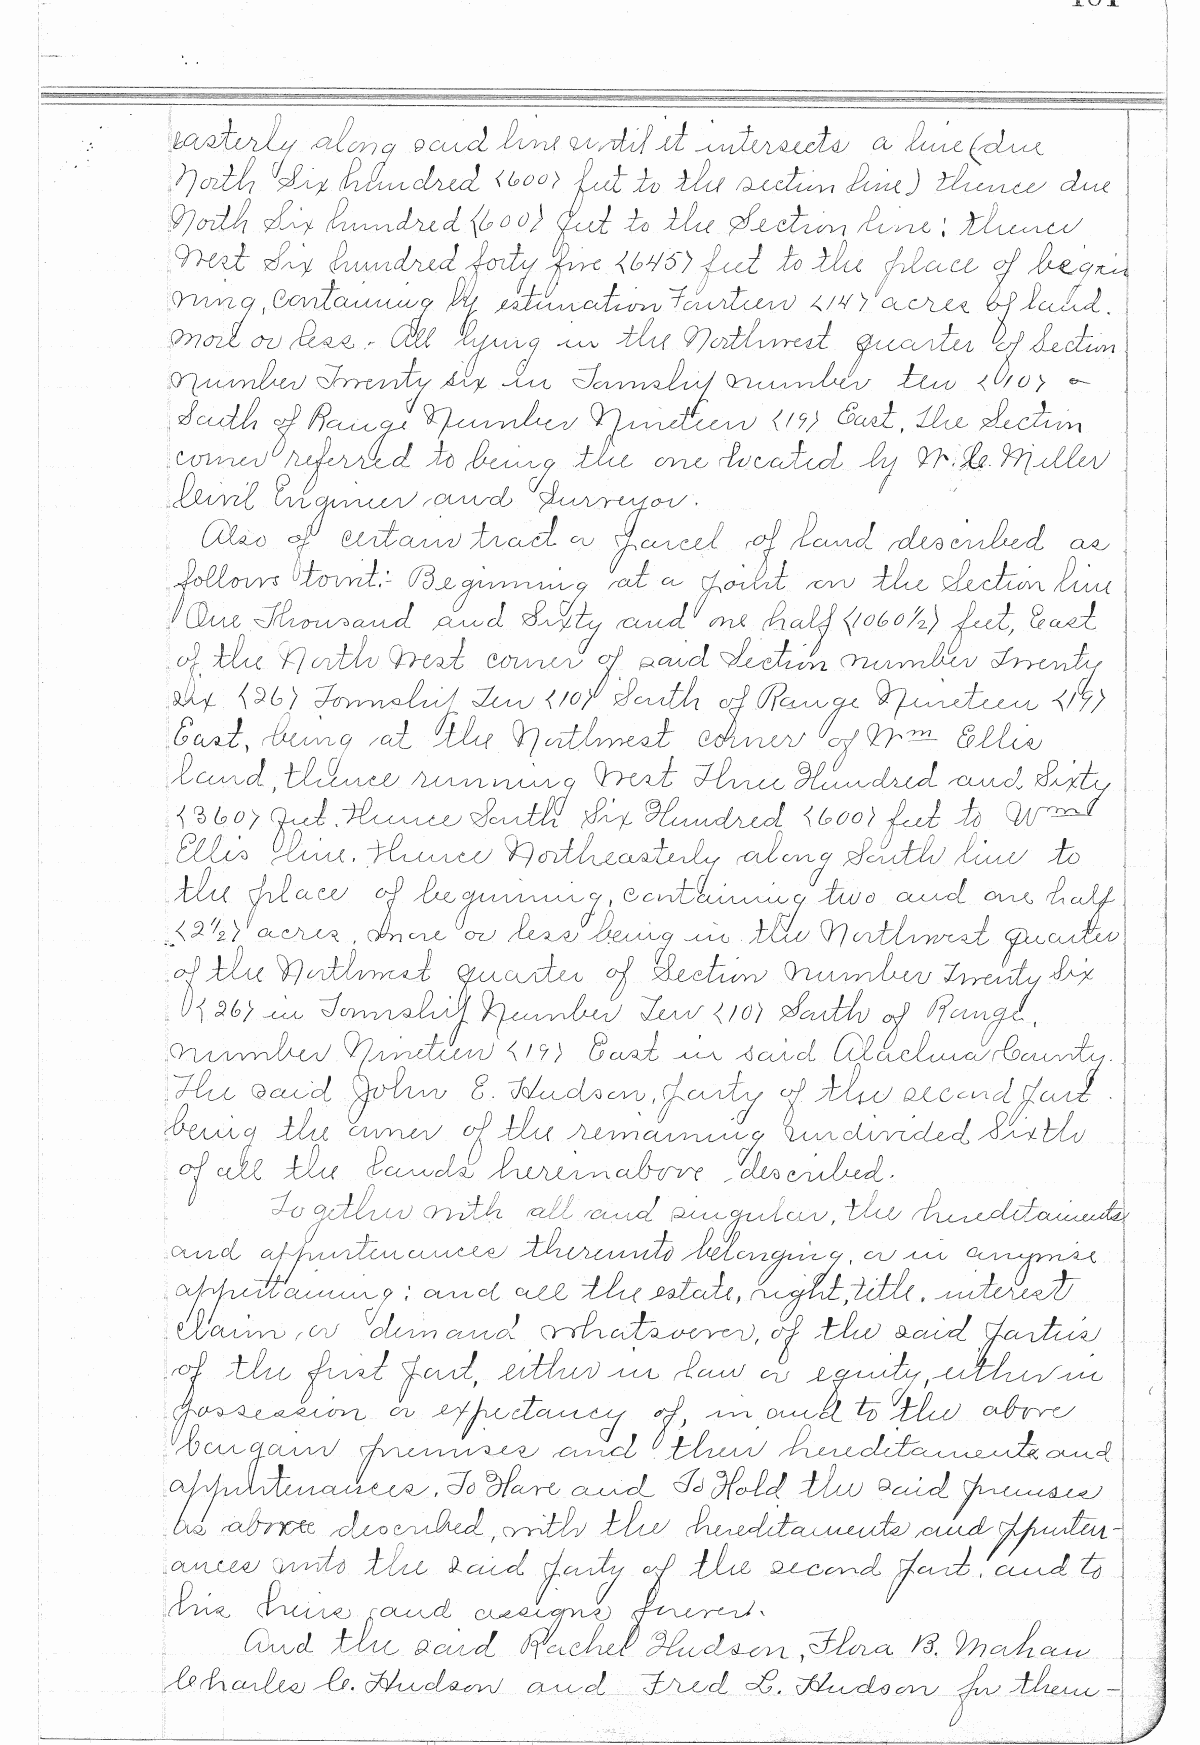 easterly along said line until it intersects a line (due
North Six hundred <600> feet to the section line) thence due
North Six hundred <600> feet to the Section line; thence
West Six hundred forty five <645> feet to the place of begin
ning, containing by estimation Fourteen <14> acres of land.
more or less. All lying in the Northwest quarter of Section
Number Twenty six in Township number ten <10>
South of Range Number Nineteen <19> East, the Section
corner referred to being the one located by W. C. Miller
Civil Engineer and Surveyor.
Also of certain tract or parcel of land described as
follows towit:- Beginning at a point on the Section line
One Thousand and Sixty and one half <1060½> feet, East
of the North West corner of said Section number Twenty
six <26> Township Ten <10> South of Range Nineteen <19>
East, being at the Northwest corner of Wm Ellis
land, thence running West Three Hundred and Sixty
<360> feet. Thence South Six Hundred <600> feet to Wm
Ellis line. Thence Northeasterly along South line to
the place of beginning, containing two and one half
<2½> acres, more or less being in the Northwest quarter
of the Northwest quarter of Section Number Twenty Six
<26> in Township Number Ten <10> South of Range,
number Nineteen <19> East in said Alachua County.
The said John E. Hudson, party of the second part
being the owner of the remaining undivided Sixth
of all the lands hereinabove described.
Together with all and singular, the hereditaments
and appurtenances thereunto belonging, or in anywise
appertaining; and all the estate, right, title, interest
claim, or demand whatsoever, of the said parties
of the first part, either in law or equity, either in
possession or expectancy of, in and to the above
bargain premises and their hereditaments and
appurtenances. To Have and To Hold the said premises
as above described, with the hereditaments and ppurten-
ances unto the said party of the second part, and to
his heirs and assigns forever.
And the said Rachel Hudson, Flora B. Mahan
Charles C. Hudson and Fred L. Hudson for them-